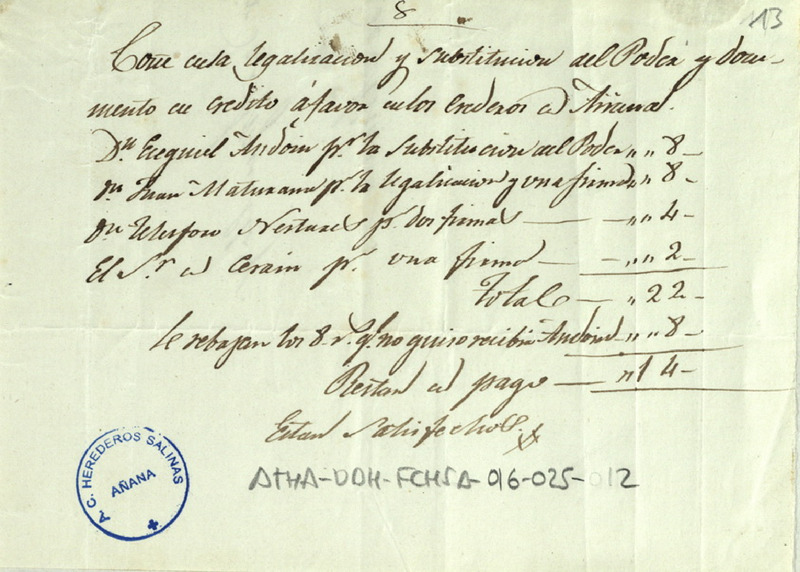 8
13
Coste de la legalizacion y substitucion del Poder y docu-
mento de credito á favor de los Erederos de Añana.
Dn. Ezequiel Andoin pr. la substitucion del Poder „ „ 8 –
Dn. Juan Maturana pr. la legalizacion y una firma „ „ 8 –
Dn. Telesforo Nestares pr. dos firmas — – „ „ 4 –
El Sr. de Cerain pr. una firma — – „ „ 2 –
Total — „ 22 –
Se rebajan los 8 rs. qe. no quiso recibir Andoin „ „ 8 –
Restan de pago — „ 14 –
Estan satisfechos.
A.C. HEREDEROS SALINAS
AÑANA
ATHA-DDH-FCHSA-016-025-012